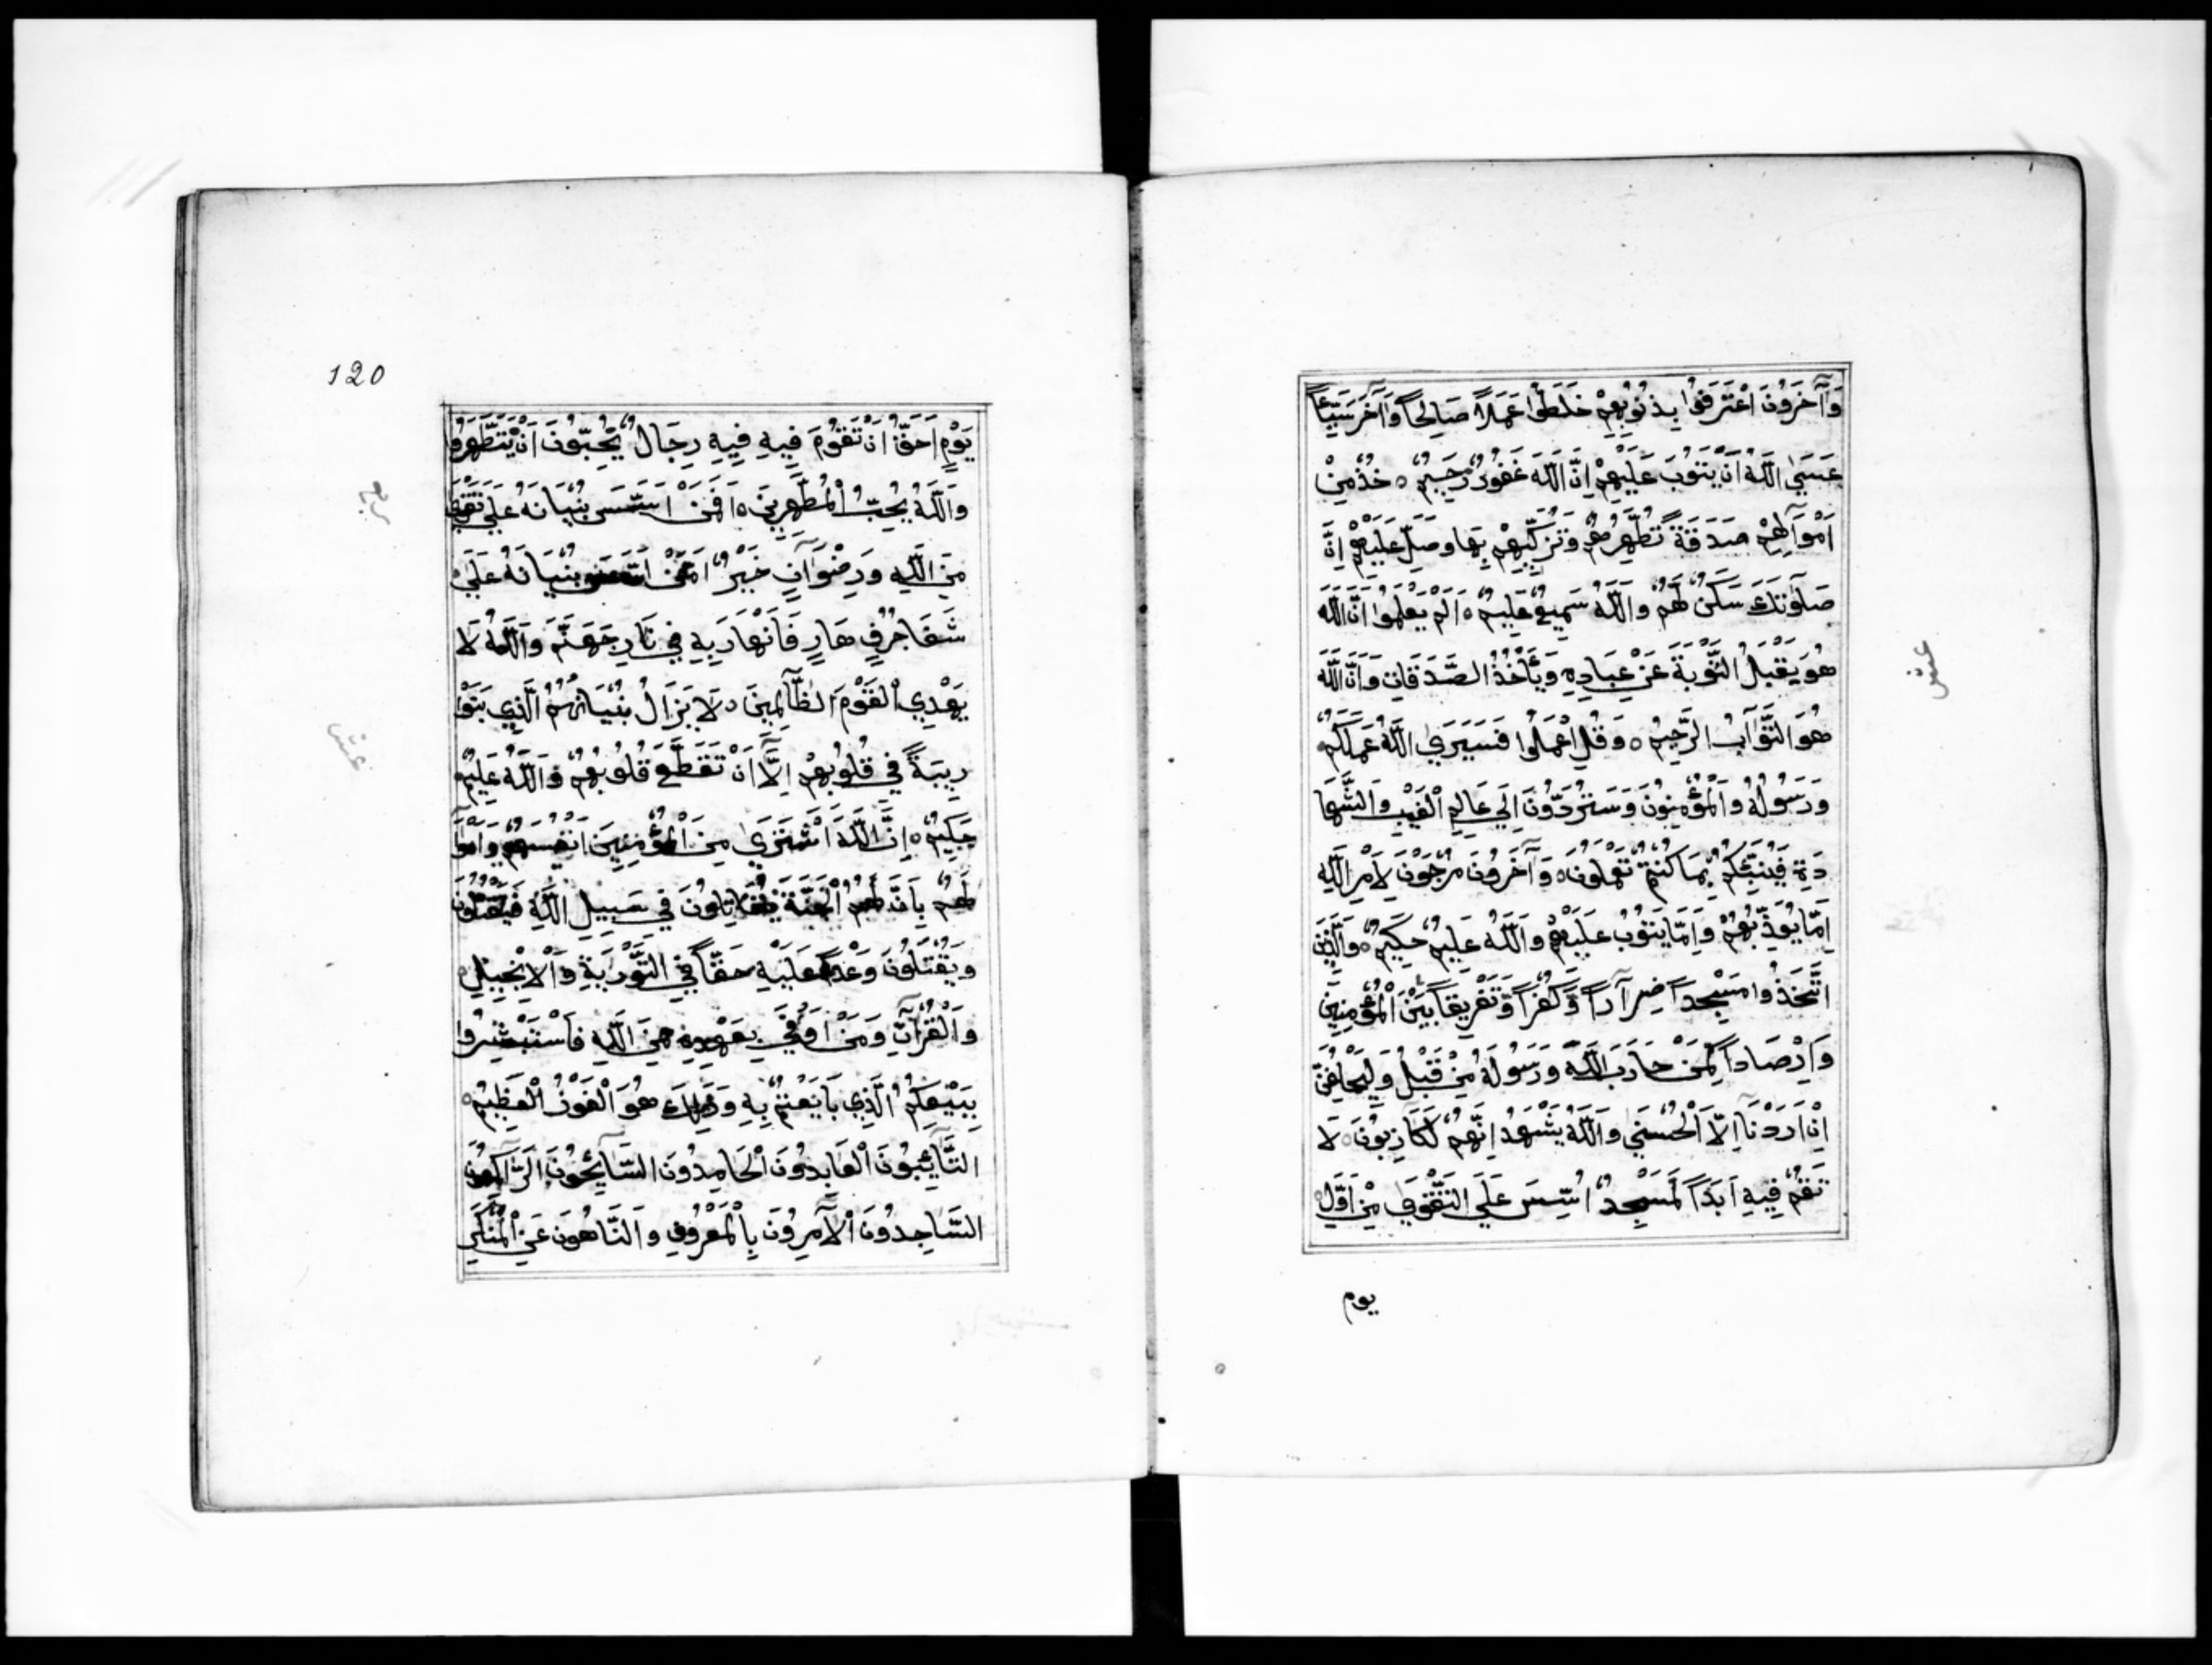 وَآخَرُونَ اعْتَرَفُوا بِذُنُوبِهِمْ خَلَطُوا عَمَلًا صَالِحًا وَآخَرَ سَيِّئًا
عَسَى اللَّهُ اَنْ يَتُوبَ عَلَيْهِمْ اِنَّ اللَّهَ غَفُورٌ رَحِيمٌ ه خُذْ مِنْ
اَمْوَالِهِمْ صَدَقَةً تُطَهِّرُهُمْ وَتُزَكِّيهِمْ بِهَا وَصَلِّ عَلَيْهِمْ اِنَّ
صَلَوٰتَكَ سَكَنٌ لَهُمْ وَاللَّهُ سَمِيعٌ عَلِيمٌ ه اَلَمْ يَعْلَمُوا اَنَّ اللَّهَ
هُوَ يَقْبَلُ التَّوْبَةَ عَنْ عِبَادِهِ وَيَأْخُذُ الصَّدَقَاتِ وَاَنَّ اللَّهَ
هُوَ التَّوَّابُ الرَّحِيمُ ه وَقُلِ اعْمَلُوا فَسَيَرَى اللَّهُ عَمَلَكُمْ
وَرَسُولُهُ وَالْمُؤْمِنُونَ وَسَتُرَدُّونَ اِلَى عَالِمِ الْغَيْبِ وَالشَّهَا
دَةِ فَيُنَبِّئُكُمْ بِمَا كُنْتُمْ تَعْمَلُونَ ه وَآخَرُونَ مُرْجَوْنَ لِاَمْرِ اللَّهِ
اِمَّا يُعَذِّبُهُمْ وَاِمَّا يَتُوبُ عَلَيْهِمْ وَاللَّهُ عَلِيمٌ حَكِيمٌ ه وَالَّذِينَ
اتَّخَذُوا مَسْجِدًا ضِرَارًا وَكُفْرًا وَتَفْرِيقًا بَيْنَ الْمُؤْمِنِينَ
وَاِرْصَادًا لِمَنْ حَارَبَ اللَّهَ وَرَسُولَهُ مِنْ قَبْلُ وَلَيَحْلِفُنَّ
اِنْ اَرَدْنَا اِلَّا الْحُسْنَى وَاللَّهُ يَشْهَدُ اِنَّهُمْ لَكَاذِبُونَ ه لَا
تَقُمْ فِيهِ اَبَدًا لَمَسْجِدٌ اُسِّسَ عَلَى التَّقْوَى مِنْ اَوَّلِ
يوم
عشر
120
يَوْمٍ اَحَقُّ اَنْ تَقُومَ فِيهِ فِيهِ رِجَالٌ يُحِبُّونَ اَنْ يَتَطَهَّرُوا
وَاللَّهُ يُحِبُّ الْمُطَّهِّرِينَ ه اَفَمَنْ اَسَّسَ بُنْيَانَهُ عَلَى تَقْوَى
مِنَ اللَّهِ وَرِضْوَانٍ خَيْرٌ اَمْ مَنْ اَسَّسَ بُنْيَانَهُ عَلَى
شَفَا جُرُفٍ هَارٍ فَانْهَارَ بِهِ فِي نَارِ جَهَنَّمَ وَاللَّهُ لَا
يَهْدِي الْقَوْمَ الظَّالِمِينَ ه لَا يَزَالُ بُنْيَانُهُمُ الَّذِي بَنَوْا
رِيبَةً فِي قُلُوبِهِمْ اِلَّا اَنْ تَقَطَّعَ قُلُوبُهُمْ وَاللَّهُ عَلِيمٌ
حَكِيمٌ ه اِنَّ اللَّهَ اشْتَرَى مِنَ الْمُؤْمِنِينَ اَنْفُسَهُمْ وَاَمْوَا
لَهُمْ بِاَنَّ لَهُمُ الْجَنَّةَ يُقَاتِلُونَ فِي سَبِيلِ اللَّهِ فَيَقْتُلُونَ
وَيُقْتَلُونَ وَعْدًا عَلَيْهِ حَقًّا فِي التَّوْرَيةِ وَالْاِنْجِيلِ
وَالْقُرْآنِ وَمَنْ اَوْفَى بِعَهْدِهِ مِنَ اللَّهِ فَاسْتَبْشِرُوا
بِبَيْعِكُمُ الَّذِي بَايَعْتُمْ بِهِ وَذَلِكَ هُوَ الْفَوْزُ الْعَظِيمُ ه
التَّائِبُونَ الْعَابِدُونَ الْحَامِدُونَ السَّائِحُونَ الرَّاكِعُونَ
السَّاجِدُونَ الْآمِرُونَ بِالْمَعْرُوفِ وَالنَّاهُونَ عَنِ الْمُنْكَرِ
عشر